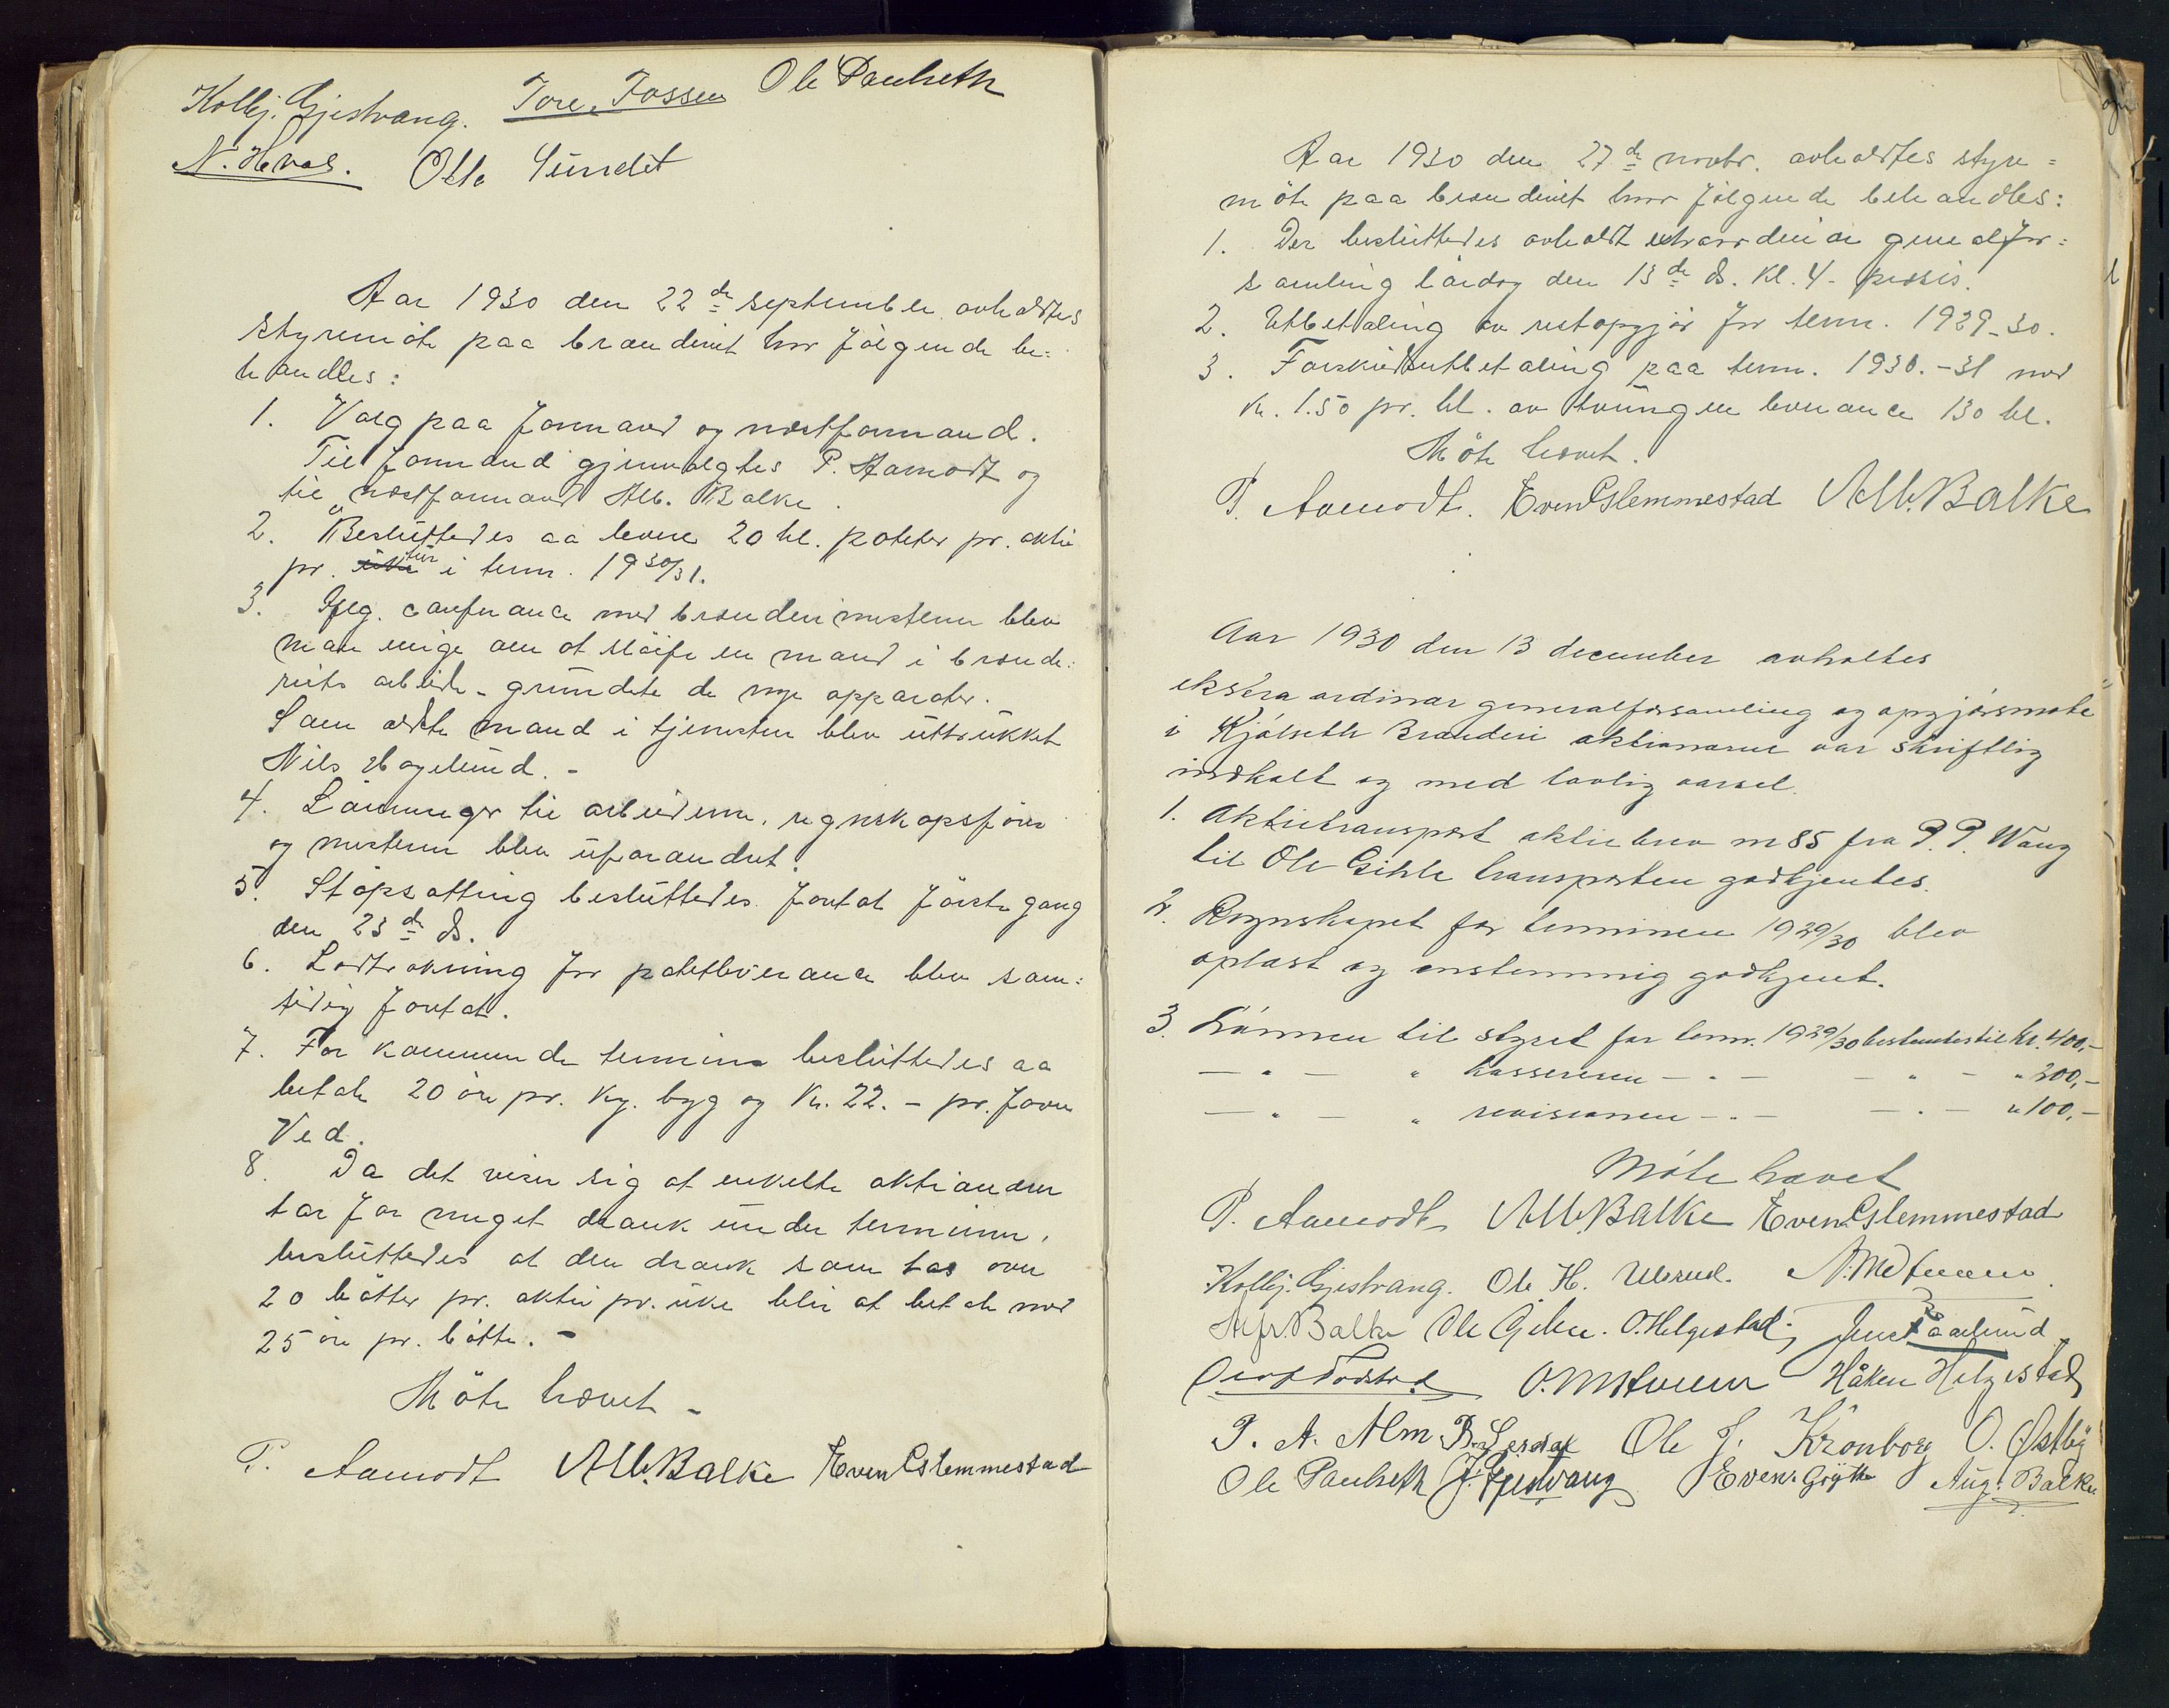 Kolbj. Gjestvang. Tore Fossen Ole Paulseth
N. Hval. Otto Sundet
Aar 1930 den 22de september avholdtes
styremöte paa brænderiet hvor fölgende be=
handles:
1. Valg paa formand og næstformand.
Til formand gjenvalgtes P. Aamodt og
til næstformand Alb. Balke.
2. Besluttedes aa levere 20 hl. poteter pr. aktie
pr. tur i term. 1930/31.
3. Ifölg. conferance med brænderimesteren blev
man enige om at slöife en mand i brænde=
riets arbeide - grundete de nye apparater.
Som ældste mand i tjenesten blev uttrukket
Nils Hagelund. -
4. Lönninger til arbeiderne, regnskapsförer
og mesteren blev uforandret.
5. Stöpsætting besluttedes fortat förste gang
den 23de ds.
6. Lodtrækning for potetleverance blev sam=
tidig fortat.
7. For kommende termin besluttedes aa
betale 20 öre pr. kg. byg og Kr. 22.- pr. favn
Ved.
8. Da det viser sig at enkelte aktionærer
tar for meget drank under terminen,
besluttedes at den drank som tas over
20 bötter pr. aktie pr. uke blir at betale med
25 öre pr. bötte. -
Möte hævet -
P. Aamodt Alb. Balke Even Glemmestad
Aar 1930 den 27de novbr. avholdtes styre=
möte paa brænderiet hvor fölgende behandles:
1. Der besluttedes avholdt extraordinær generalfor=
samling lördag den 13de ds. kl. 4 - præsis.
2. Utbetaling av restopgjör for term. 1929-30.
3. Forskudsutbetaling paa term. 1930.-31 med
Kr. 1.50 pr. hl. av tvungen leverance 130 hl.
Möte hævet.
P. Aamodt. Even Glemmestad Alb. Balke
Aar 1930 den 13 december avholtes
ekstra ordinær generalforsamling og opgjörsmöte
i Kjölseth Brænderi aktionærene var skriftlig
indkalt og med lovlig varsel.
1. Aktietransport aktiebrev nr 85 fra P. P. Wang
til Ole Gihle transporten godkjentes.
2. Regnskapet for terminen 1929/30 blev
oplæst og enstemmig godkjent.
3. Lönnen til styret for term. 1929/30 bestemtes til Kr. 400,-
— " — " kassereren — " — — " — " 300,-
— " — " revisoren — " — — " — " 100,-
Möte hævet
P. Aamodt Alb. Balke Even Glemmestad
Kolbj. Gjestvang. Ole H. Ulsrud.
Alfr. Balke Ole Gihle. O. Helgestad. Jens Faarlund
Håken Helgestad
P. A. Alm Ole J. Kronborg O. Østby
Ole Paulseth J. Gjestvang Even Grötte Aug. Balke